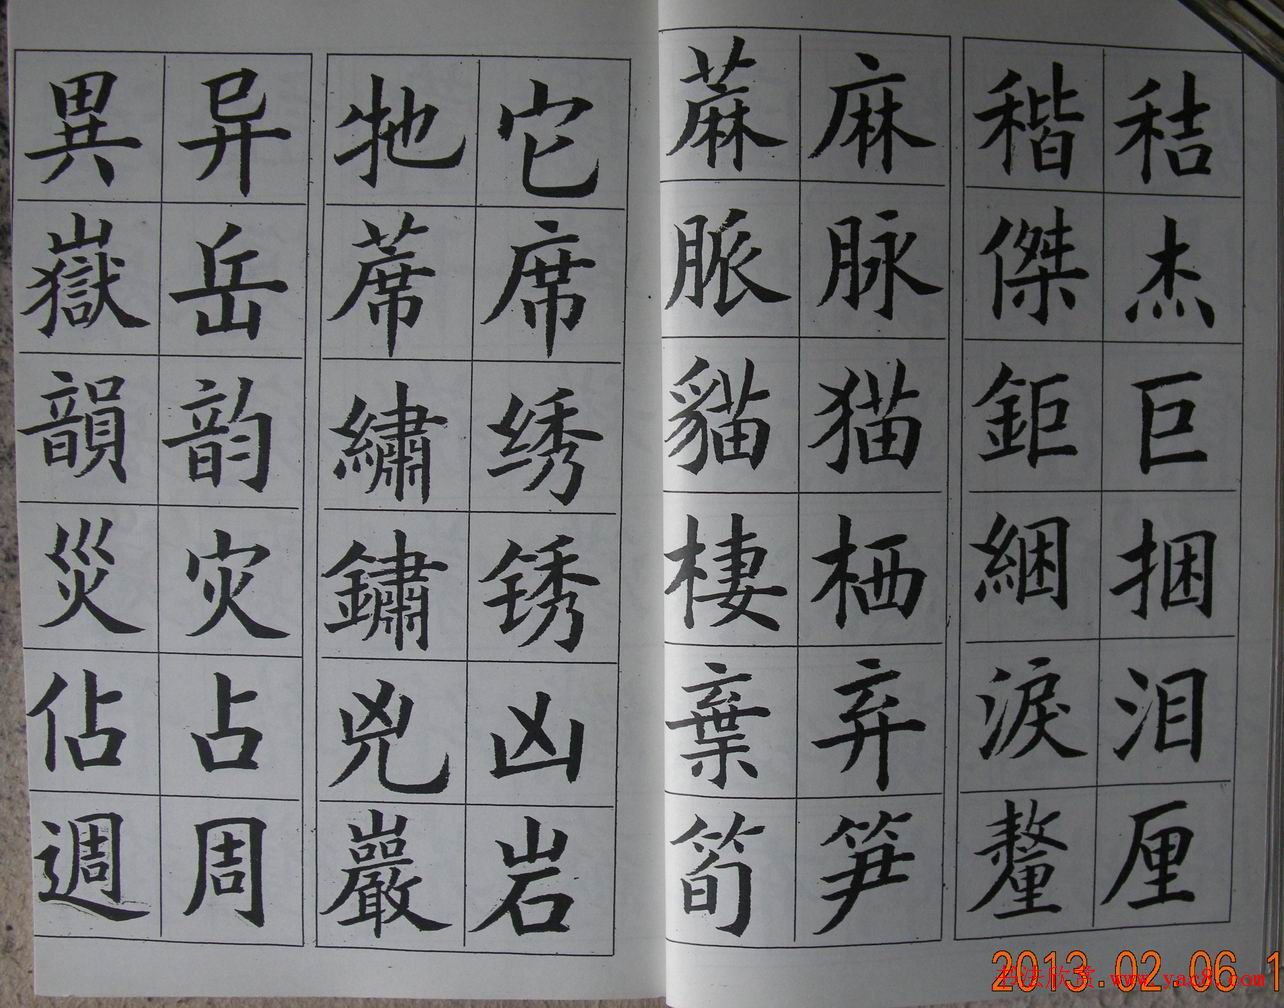 秸杰巨捆泪厘
稭傑鉅綑淚釐
麻脉猫栖弃笋
蔴脈貓棲棄筍
它席绣锈凶岩
牠蓆繡鏽兇巖
异岳韵灾占周
異嶽韻災佔週
2013.02.06 1
书法欣赏 www.yac8.com